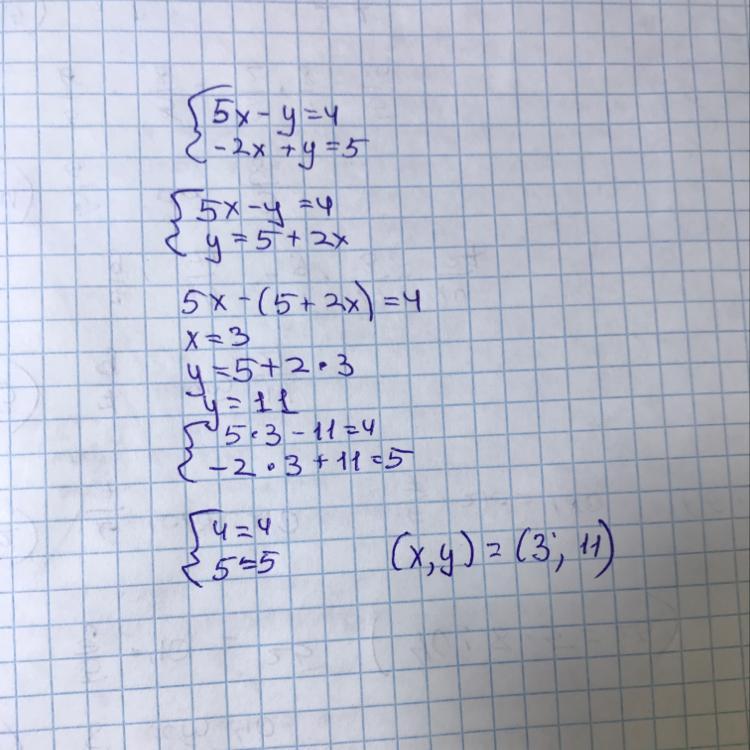 5x - y = 4
-2x + y = 5
5x - y = 4
y = 5 + 2x
5x - (5 + 2x) = 4
x = 3
y = 5 + 2 · 3
y = 11
5 · 3 - 11 = 4
-2 · 3 + 11 = 5
4 = 4
5 = 5
(x, y) = (3; 11)